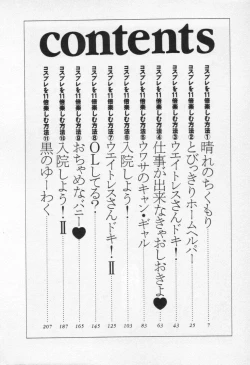 contents
コスプレを11倍楽しむ方法① 晴れのちくもり 7
コスプレを11倍楽しむ方法② とびっきりホームヘルパー 25
コスプレを11倍楽しむ方法③ ウエイトレスさんドキ! 43
コスプレを11倍楽しむ方法④ 仕事が出来なきゃおしおきよ♥ 63
コスプレを11倍楽しむ方法⑤ ウワサのキャンギャル 83
コスプレを11倍楽しむ方法⑥ 入院しよう! 103
コスプレを11倍楽しむ方法⑦ ウエイトレスさんドキ!Ⅱ 125
コスプレを11倍楽しむ方法⑧ OLしてる? 145
コスプレを11倍楽しむ方法⑨ おちゃめな、バニー♥ 165
コスプレを11倍楽しむ方法⑩ 入院しよう!Ⅱ 187
コスプレを11倍楽しむ方法⑪ 黒のゆーわく 207